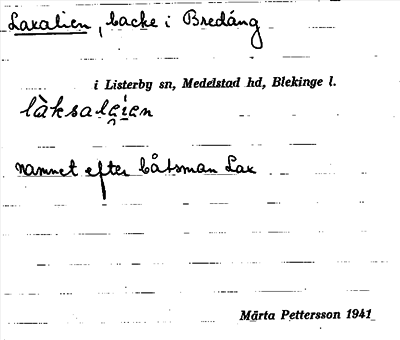 Laxalien, backe i Bredång
i Listerby sn, Medelstad hd, Blekinge l.
làksalei̯en
namnet efter båtsman Lax
Märta Pettersson 1941